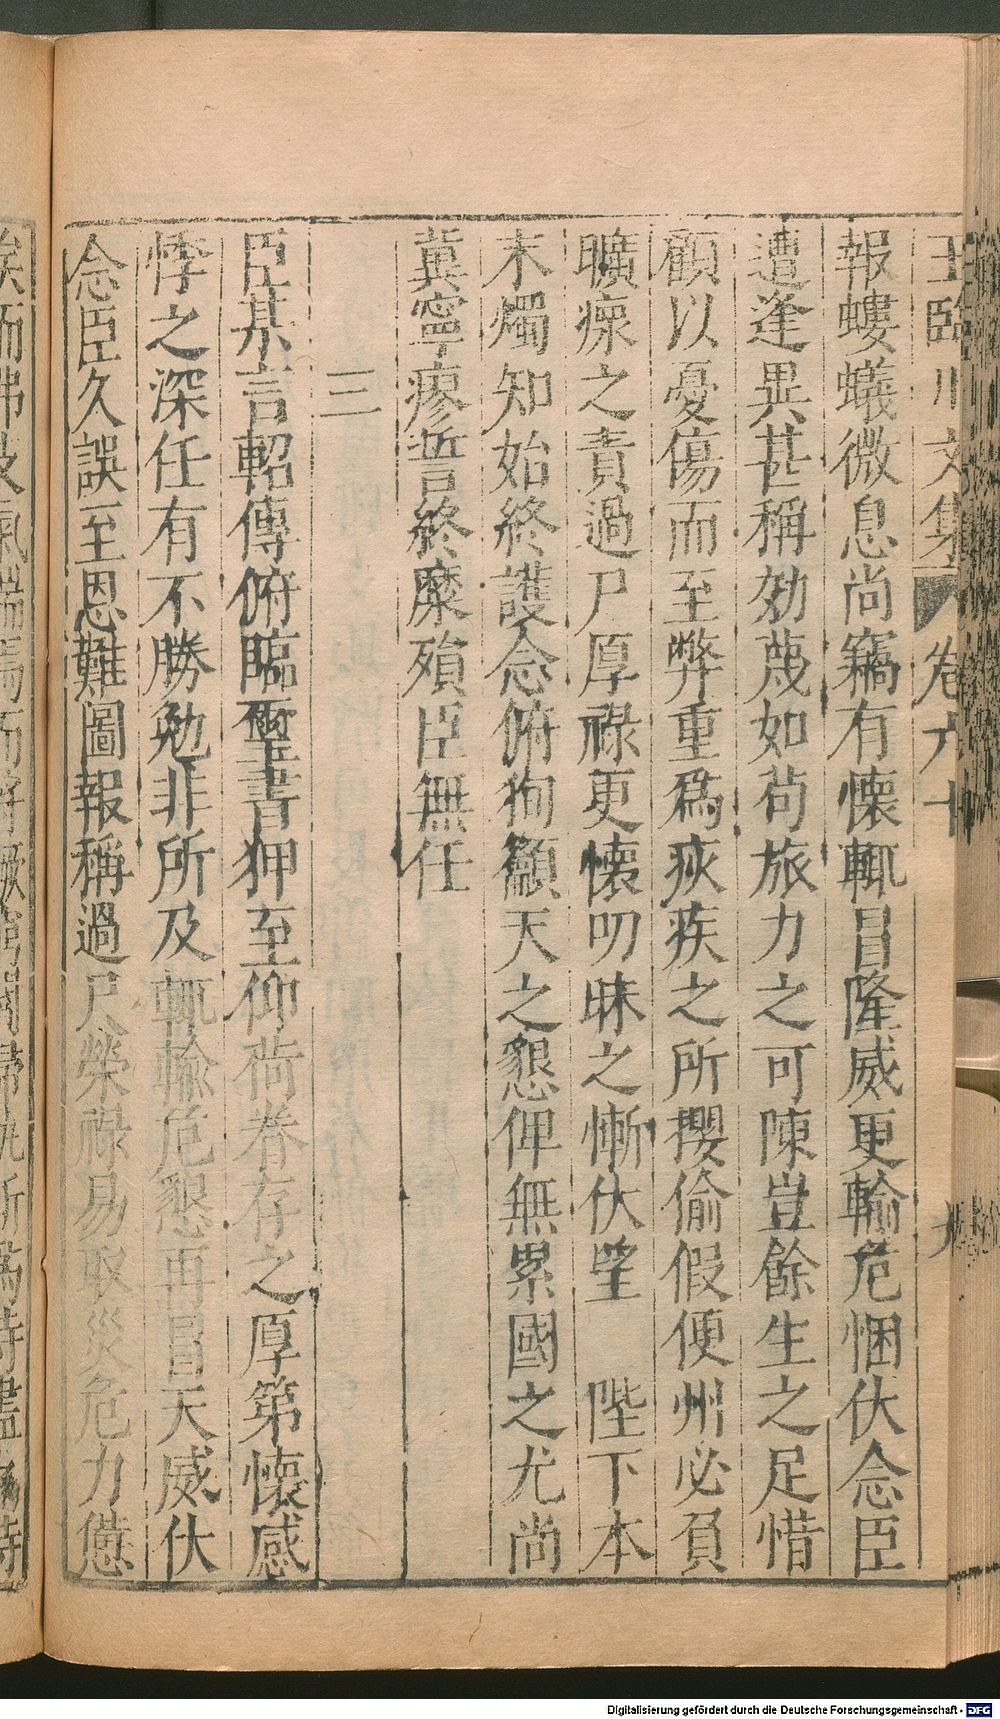 王臨川文集 卷六十 九
報螻蟻微息尚竊有懷輒冒隆威更輸危悃伏念臣
遭逢異甚稱効蔑如苟旅力之可陳豈餘生之足惜
顧以憂傷而至弊重爲疢疾之所攖偷假便州必負
曠瘝之責過尸厚祿更懷叨昧之慚伏望 陛下本
末燭知始終護念俯徇籲天之懇俾無累國之尤尚
冀寧瘳誓終糜殞臣無任
三
臣某言軺傳俯臨璽書狎至仰荷眷存之厚第懷感
悸之深任有不勝勉非所及輒輸危懇再冒天威伏
念臣久誤至恩難圖報稱過尸榮祿易取災危力憊
Digitalisierung gefördert durch die Deutsche Forschungsgemeinschaft - DFG